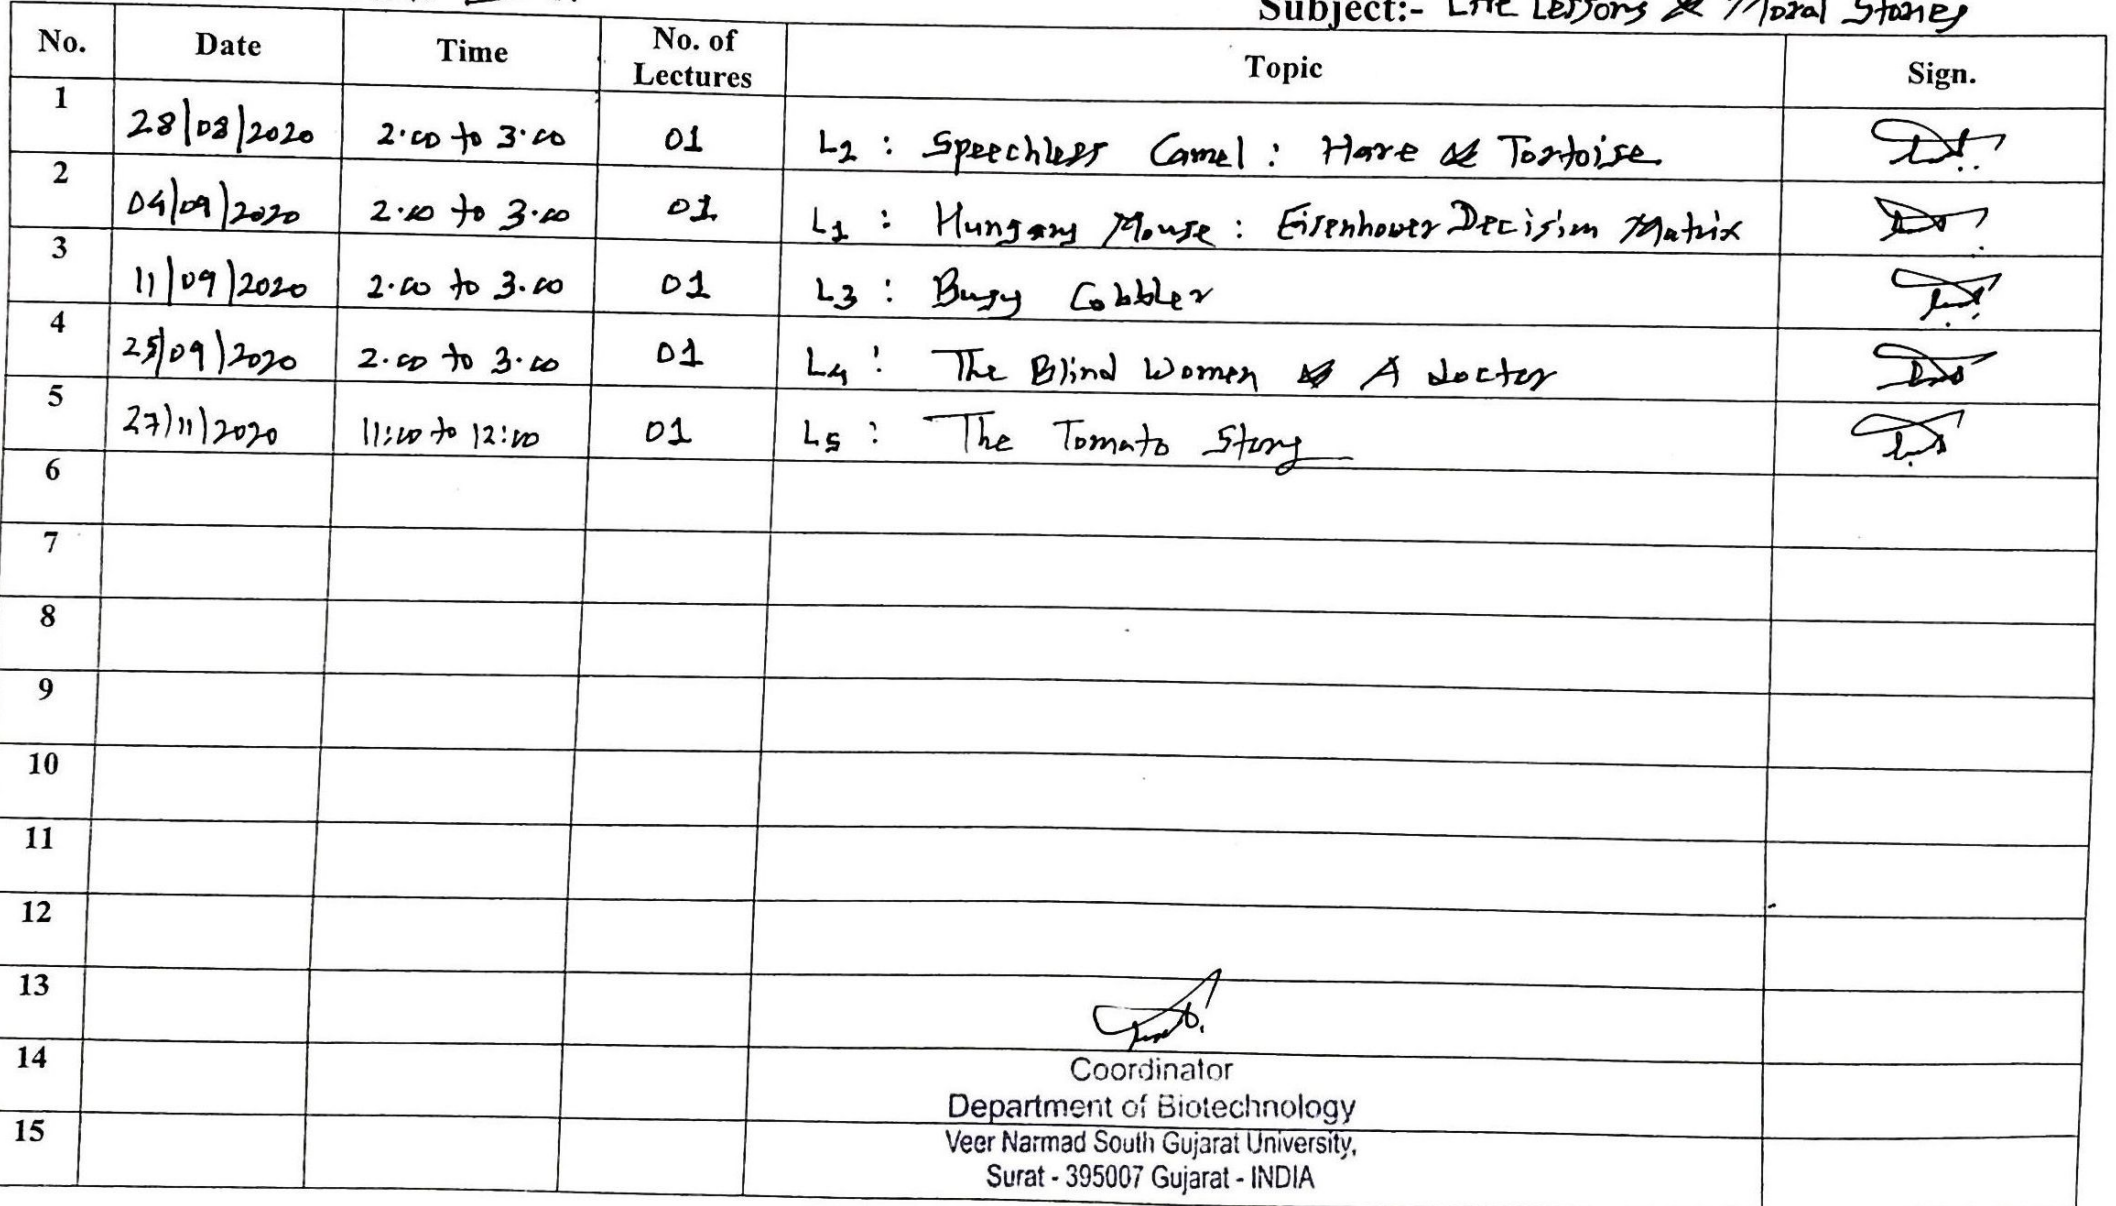 Subject:- Life Lessons & Moral Stories
No. Date Time No. of Lectures Topic Sign.
1 28/08/2020 2.00 to 3.00 01 L2 : Speechless Camel : Hare & Tortoise
2 04/09/2020 2.00 to 3.00 01 L1 : Hungary Mouse : Eisenhower Decision Matrix
3 11/09/2020 2.00 to 3.00 01 L3 : Busy Cobbler
4 25/09/2020 2.00 to 3.00 01 L4 : The Blind Women & A doctor
5 27/11/2020 11:00 to 12:00 01 L5 : The Tomato Story
6
7
8
9
10
11
12
13
14
Coordinator
Department of Biotechnology
15
Veer Narmad South Gujarat University,
Surat - 395007 Gujarat - INDIA